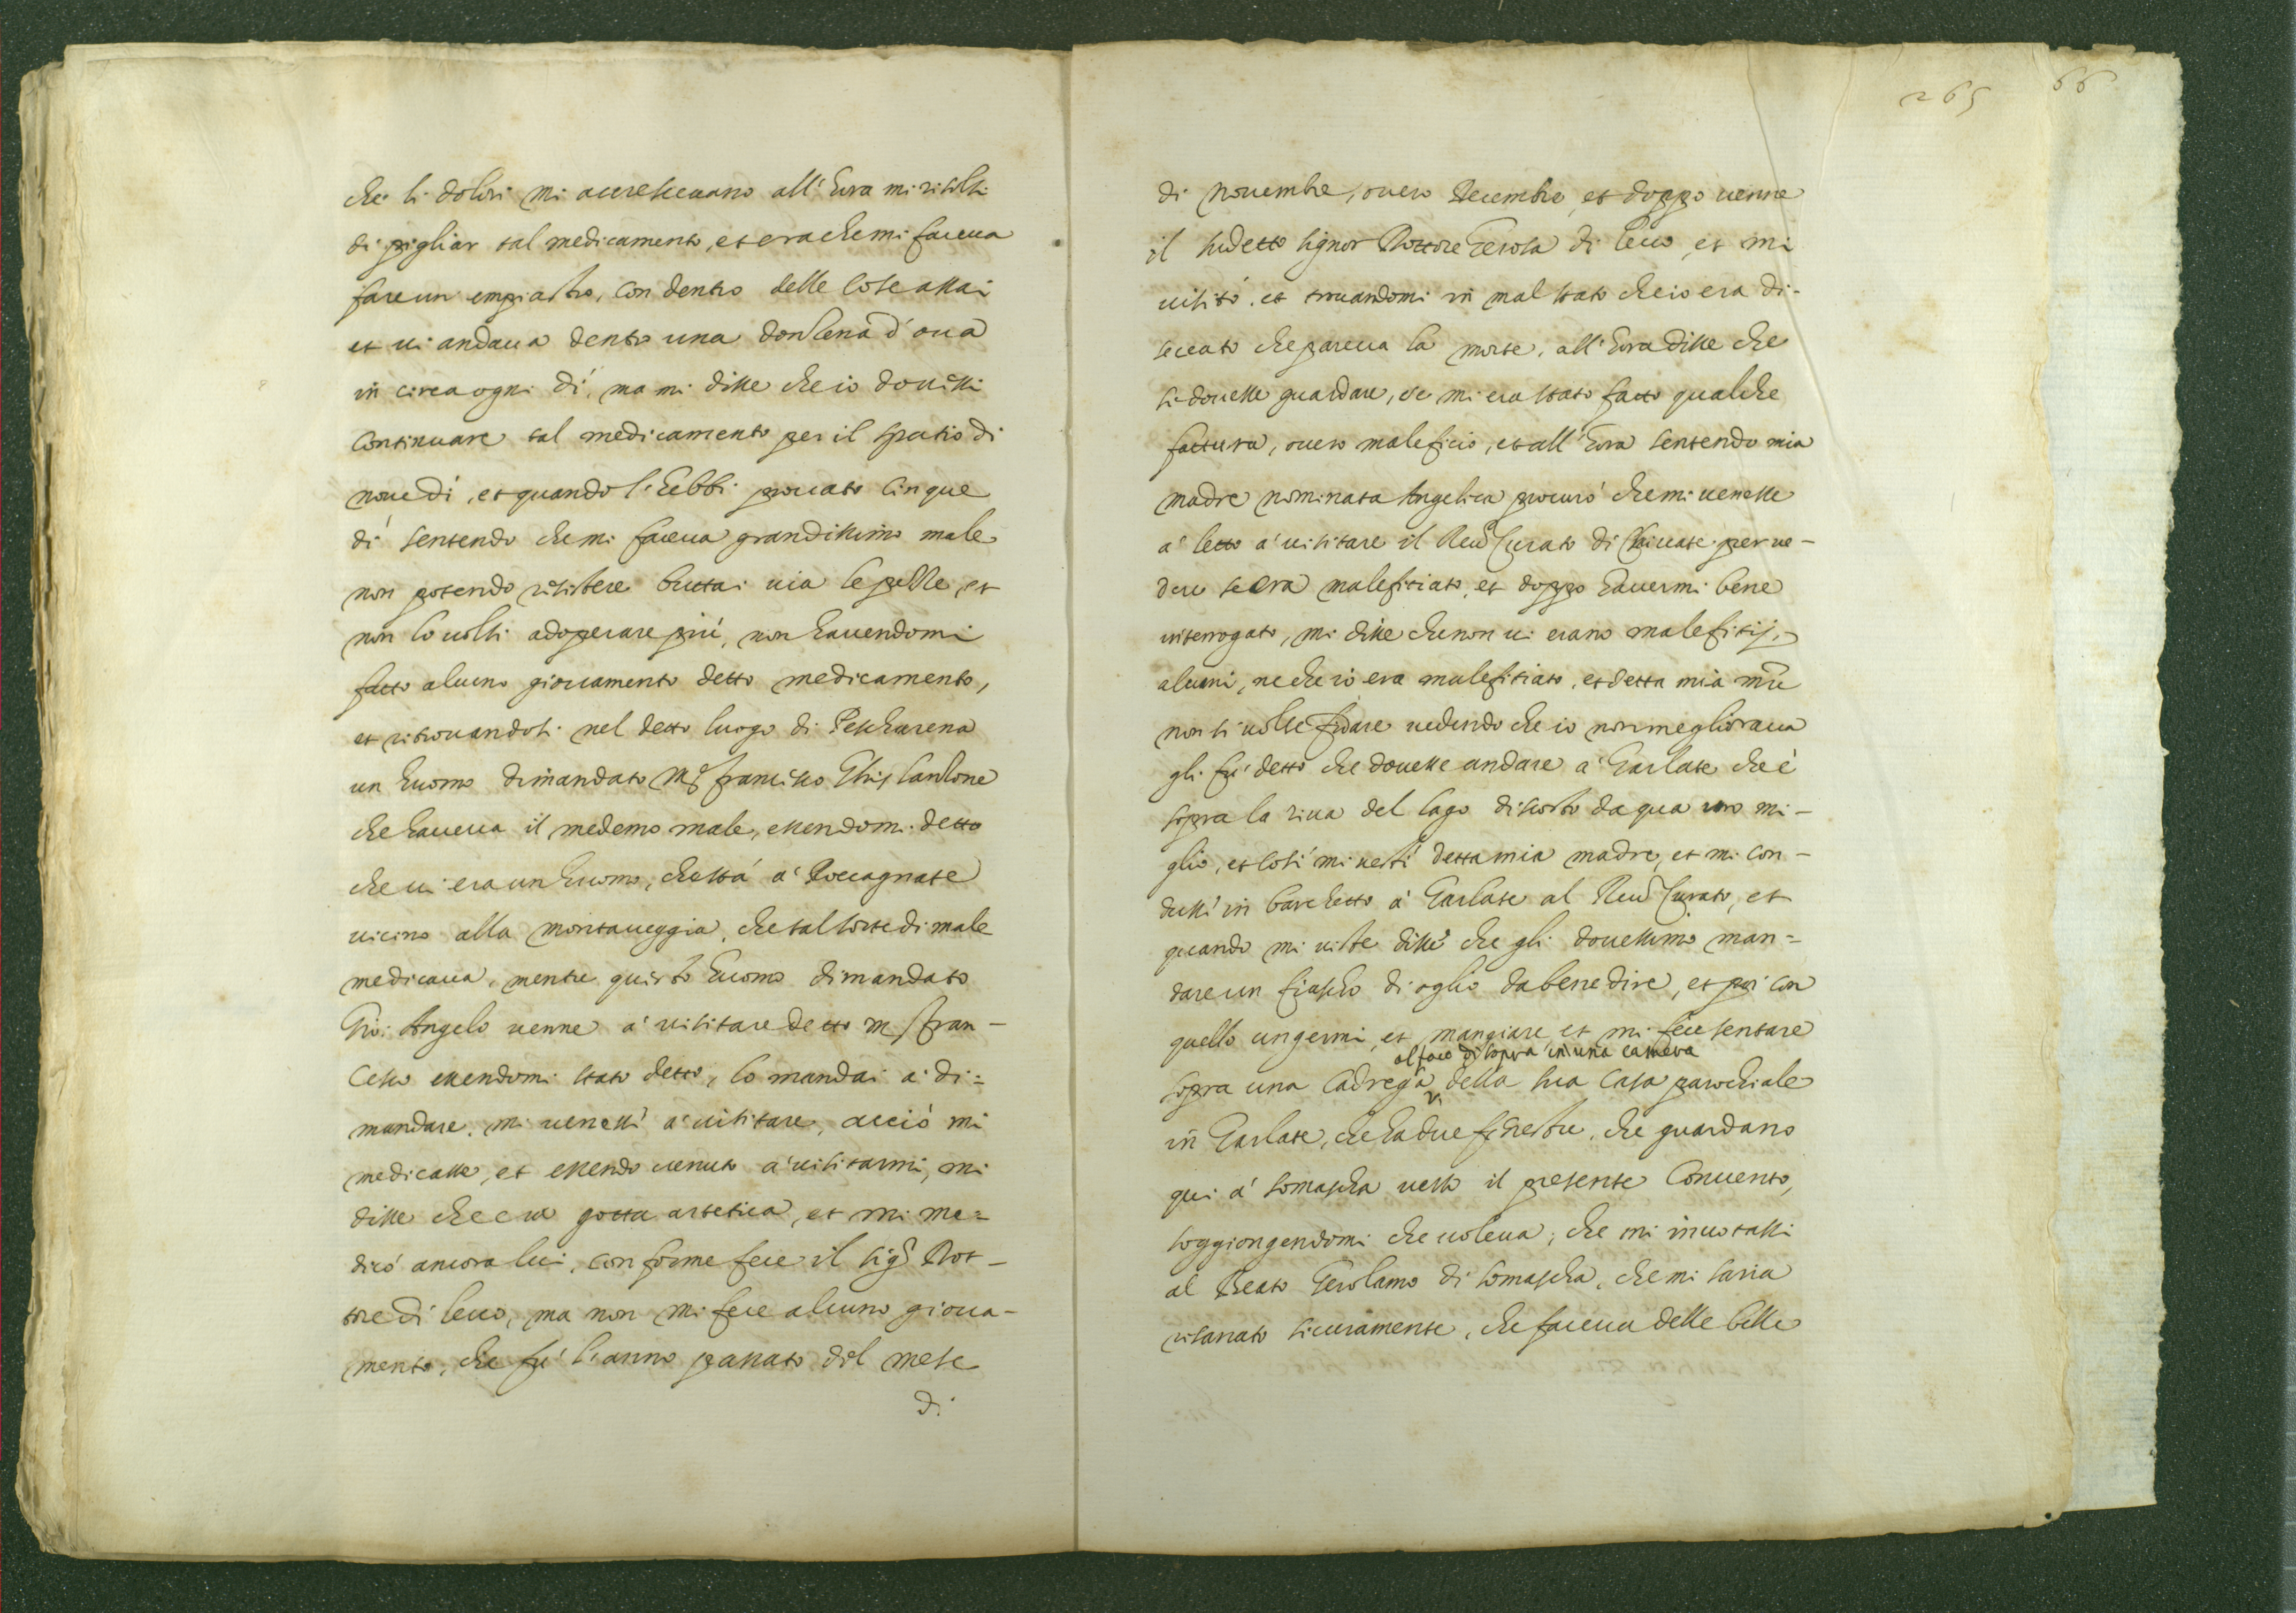 che li dolori mi accrescevano all'hora mi risolsi
di pigliar tal medicamento, et era che mi faceua
fare un empiastro, con dentro delle cose assai
et ui andaua dentro una donzena d'oua
in circa ogni dì, ma mi disse che io douessi
continuare tal medicamento per il spatio di
noue dì, et quando l'hebbi prouato cinque
dì sentendo che mi faceua grandissimo male
non potendo resistere buttai uia le pelle, et
non lo uolsi adoperare più, non hauendomi
fatto alcuno giouamento detto medicamento,
et ritrouandosi nel detto luogo di Pescharena
un huomo dimandato Mr. francisco Ghislanzone
che haueua il medemo male, essendomi detto
che ui era un huomo, che stà à Roccagnate
uicino alla montaueggia, che tal sorte di male
medicaua, mentre questo huomo dimandato
Gio: Angelo uenne à uisitare detto m. fran-
cesco essendomi stato detto, lo mandai à di=
mandare, mi uenessi à uisitare, acciò mi
medicasse, et essendo uenuto à uisitarmi, mi
disse che era gotta artetica, et mi me=
dicò ancora lui, conforme fece il sigr. Dot-
tore di lecco, ma non mi fece alcuno gioua-
mento, che fu l'anno passato del mese
di
265
66
di nouembre, ouero Decembre, et doppo uenne
il sudetto signor Dottore Gerosa di lecco, et mi
uisitò, et trouandomi in mal stato che io era di-
seccato che pareua la morte, all'hora disse che
si douesse guardare, se mi era stato fatto qualche
fattura, ouero maleficio, et all'hora sentendo mia
madre nominata Angelica procurò che mi uenesse
à letto à uisitare il Reu. Curato di Chiuate per ue-
dere se era malefitiato, et doppo hauermi bene
interrogato, mi disse che non ui erano malefitij
alcuni, ne che io era malefitiato, et detta mia mre
non si uolse fidare uedendo che io non megliораua
gli fu detto che douesse andare à Garlate che è
sopra la riua del lago discosto da qua uno mi-
glio, et così mi uestì detta mia madre, et mi con-
dussi in barchetto à Garlate al Reu. Curato, et
quando mi uiste disse che gli douessimo man=
dare un fiascho di oglio da benedire, et poi con
quello ungermi, et mangiare, et mi fece sentare
al foco di sopra in una camera
sopra una cadrega della sua casa parochiale
in Garlate, che ha due finestre, che guardano
qui à somascha uerso il presente Conuento,
soggiongendomi che uoleua, che mi inuotassi
al Beato Gerolamo di somascha, che mi saria
risanato sicuramente, che faceua delle belle